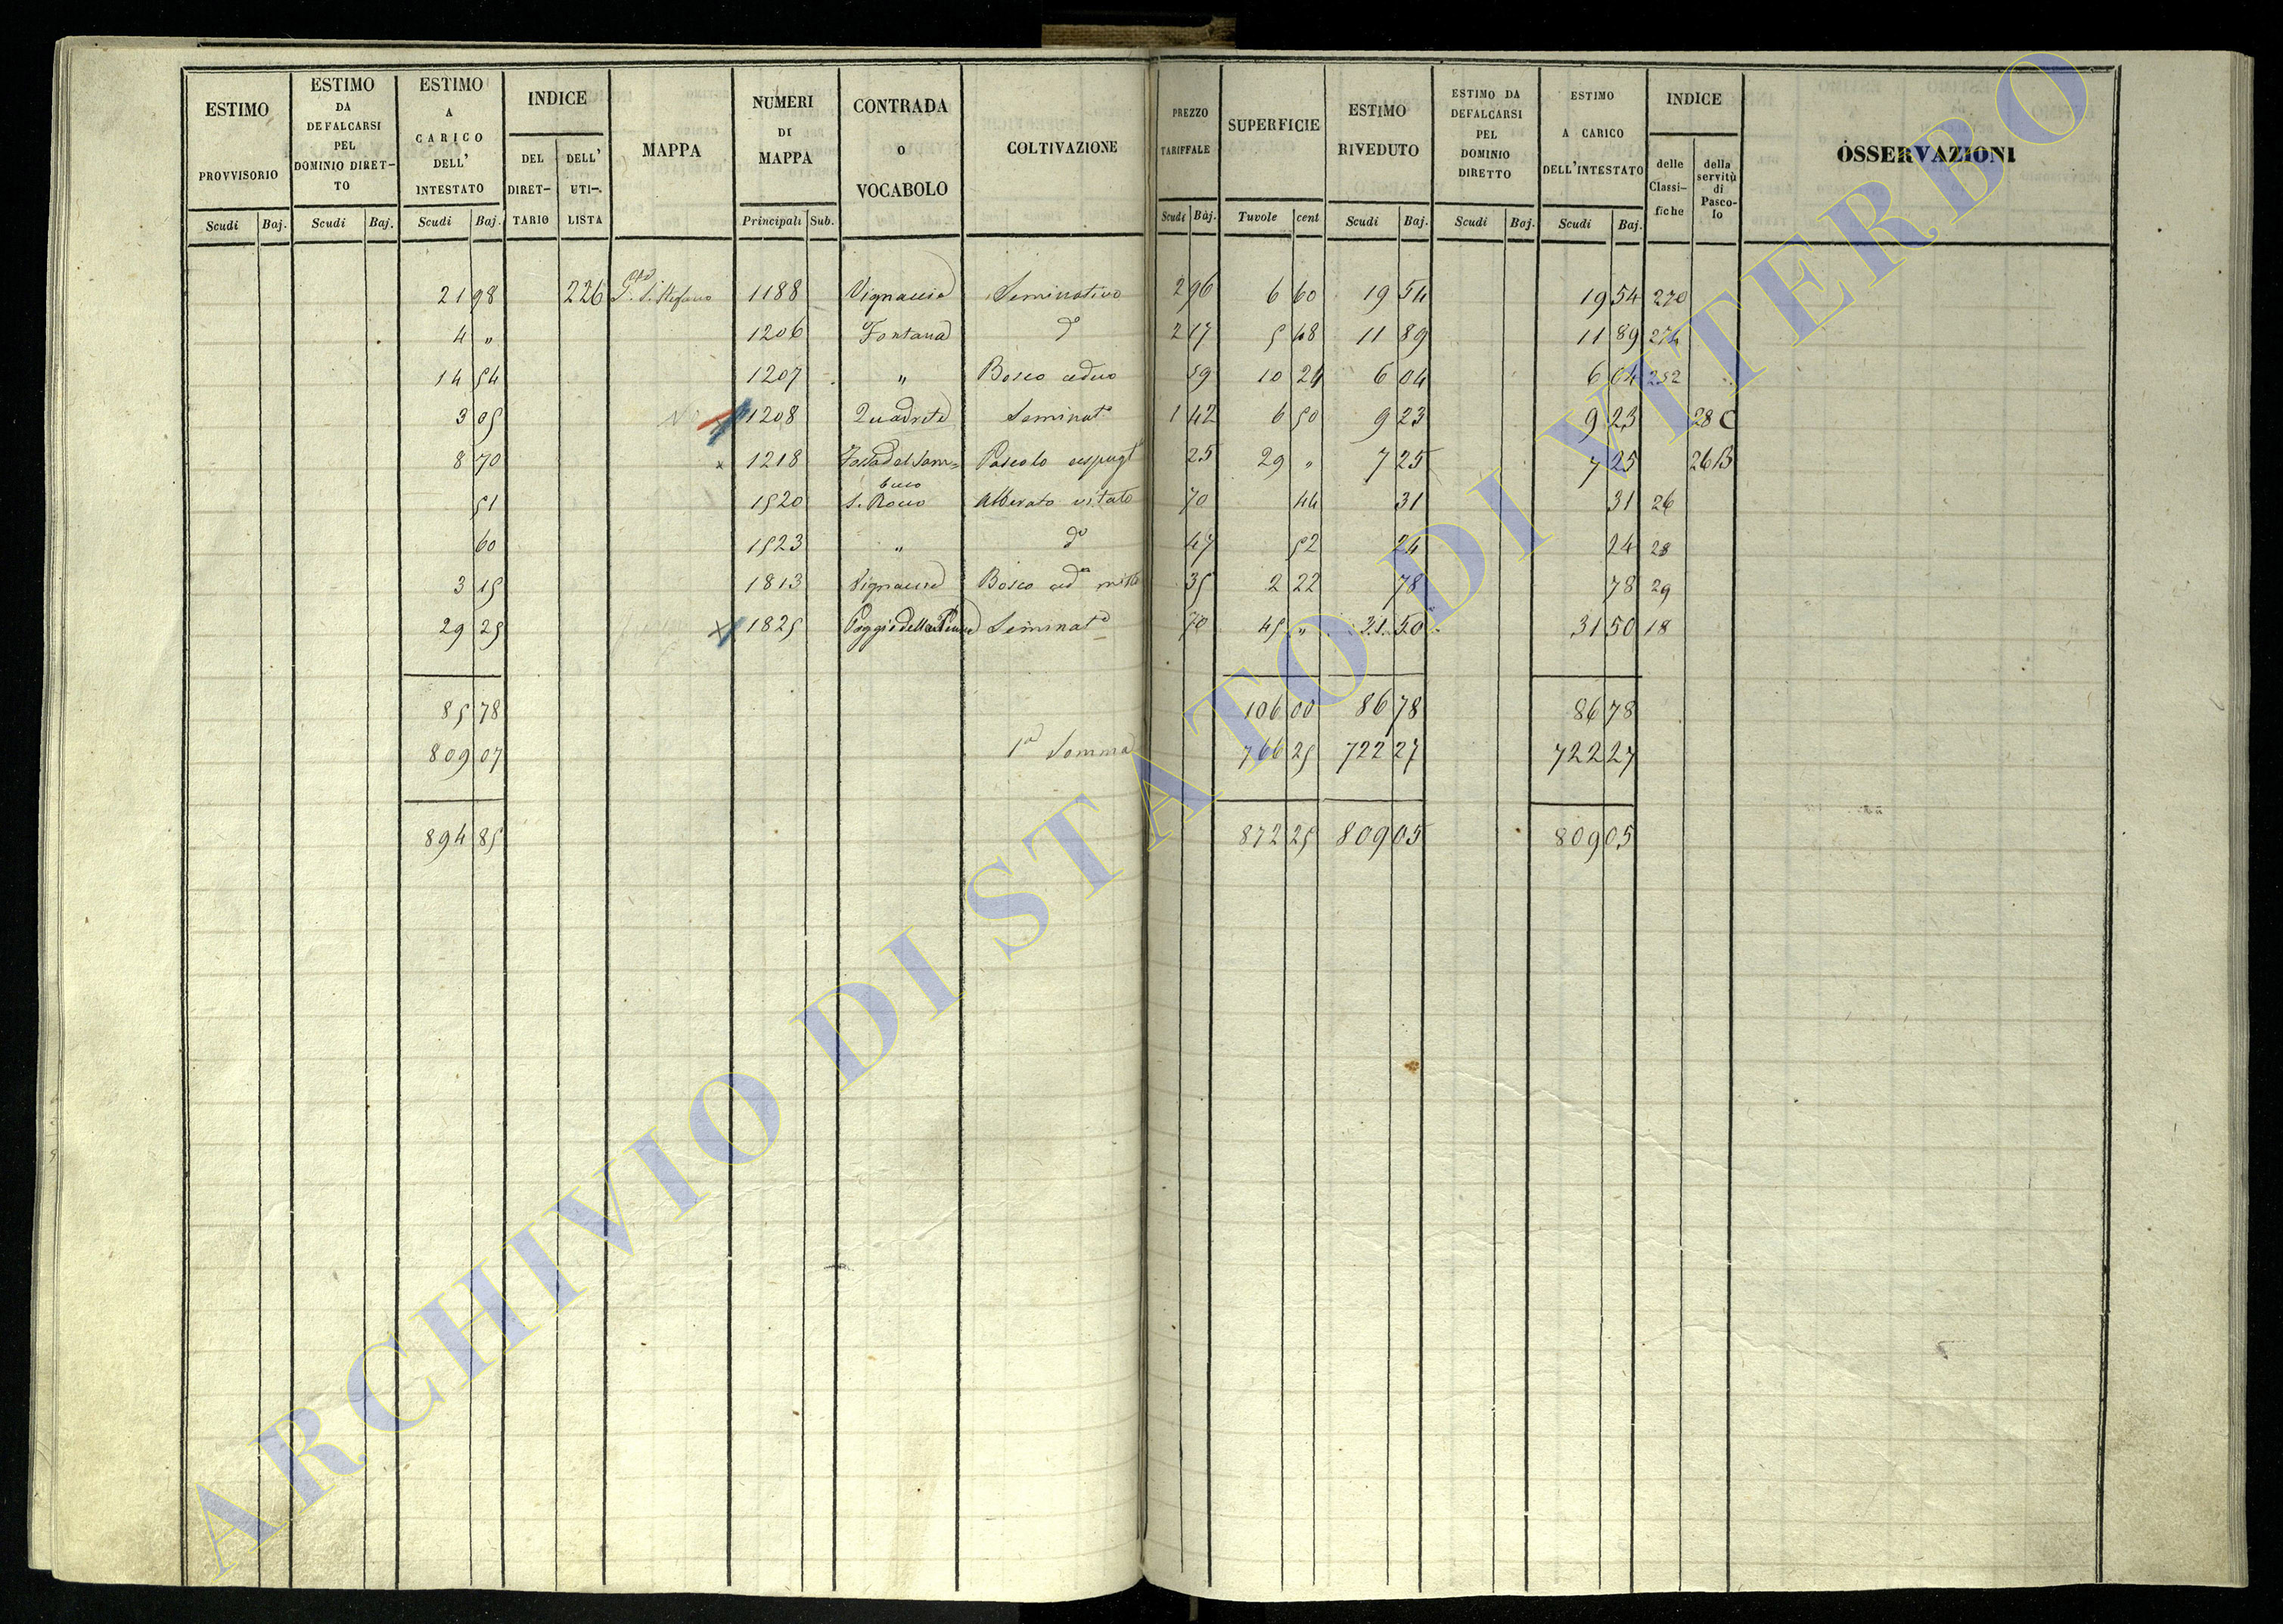 ESTIMO PROVVISORIO Scudi Baj.
ESTIMO DA DEFALCARSI PEL DOMINIO DIRET-TO Scudi Baj.
ESTIMO A CARICO DELL' INTESTATO Scudi Baj.
INDICE DEL DIRET-TARIO DELL' UTI-LISTA
MAPPA
NUMERI DI MAPPA Principali Sub.
CONTRADA o VOCABOLO
COLTIVAZIONE
PREZZO TARIFFALE Scudi Baj.
SUPERFICIE Tavole cent
ESTIMO RIVEDUTO Scudi Baj.
ESTIMO DA DEFALCARSI PEL DOMINIO DIRETTO Scudi Baj.
ESTIMO A CARICO DELL'INTESTATO Scudi Baj.
INDICE delle Classi-fiche della servitù di Pasco-lo
OSSERVAZIONI
21 98 226 S. Stefano 1188 Vignaccia Seminativo 2 96 6 60 19 54 19 54 270
4 " 1206 Fontana d° 2 17 5 48 11 89 11 89 274
14 54 1207 " Bosco ceduo 59 10 24 6 04 6 04 252
3 05 1208 Quadrete Seminat° 1 42 6 50 9 23 9 23 28 C
8 70 x 1218 Fosso del Sam=buco Pascolo cespugl° 25 29 " 7 25 7 25 26 B
51 1520 S. Rocco Alberato vitato 70 44 31 31 26
60 1523 " d° 47 52 24 24 28
3 15 1813 Vignaccia Bosco ced° misto 35 2 22 78 78 29
29 25 x 1825 Poggio della Seminat° 70 45 " 31 50 31 50 18
85 78 106 00 86 78 86 78
809 07 1a Somma 766 25 722 27 722 27
894 85 872 25 809 05 809 05
ARCHIVIO DI STATO DI VITERBO